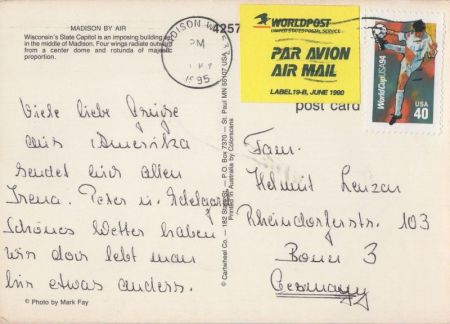 MADISON BY AIR
Wisconsin's State Capitol is an imposing building set
in the middle of Madison. Four wings radiate outward
from a center dome and rotunda of majestic
proportion.
MADISON W
PM
1995
4257
WORLDPOST
UNITED STATES POSTAL SERVICE
PAR AVION
AIR MAIL
LABEL 19-B, JUNE 1990
WorldCupUSA94
USA
40
post card
Viele liebe Grüsse
aus Amerika
sendet euch allen
Irena. Peter u. Edelgard
Schönes Wetter haben
wir doch lebt man
hier etwas anders.
© Photo by Mark Fay
© Cartwheel Co. — 182 State St. — P.O. Box 7370 — St. Paul MN 55107 USA
Printed in Australia by Colorscans
Fam.
Helmut Lenzen
Rheindorferstr. 103
Bonn 3
Germany